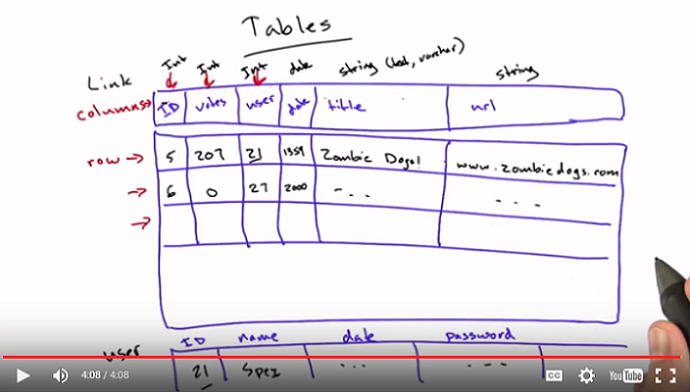 Tables
Int Int Int date string (text, varchar) string
Link
columns → ID votes user date title url
row → 5 207 21 1359 Zombie Dogs! www.zombiedogs.com
→ 6 0 27 2000 - - - - - -
→
ID name date password
user
21 Spez ... - - -
4:08 / 4:08 CC YouTube